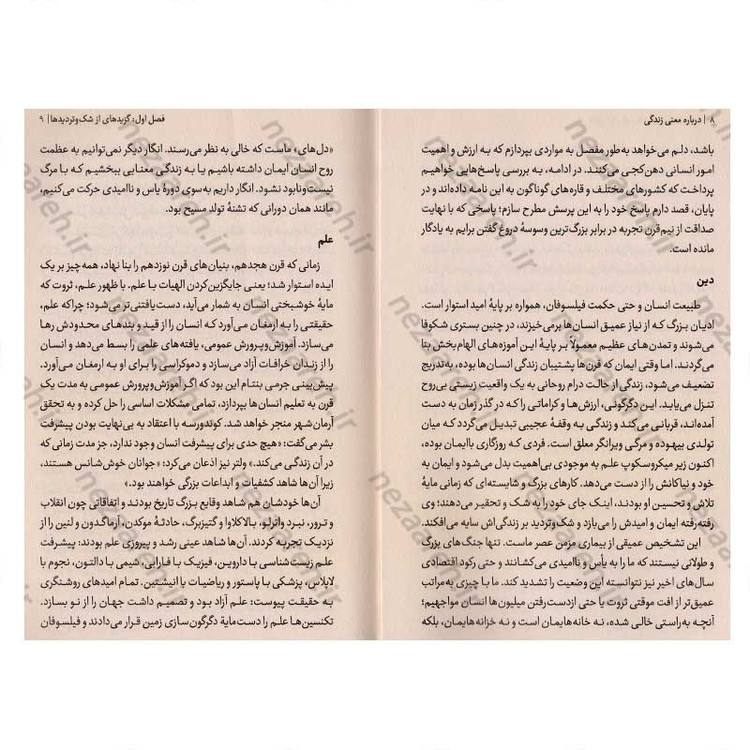 ۸ | درباره معنی زندگی
باشد، دلم می‌خواهد به‌طور مفصل به مواردی بپردازم که به ارزش و اهمیت
امور انسانی دهن‌کجی می‌کنند. در ادامه، به بررسی پاسخ‌هایی خواهیم
پرداخت که کشورهای مختلف و قاره‌های گوناگون به این نامه داده‌اند و در
پایان، قصد دارم پاسخ خود را به این پرسش مطرح سازم؛ پاسخی که با نهایت
صداقت از نیم‌قرن تجربه در برابر بزرگ‌ترین وسوسهٔ دروغ گفتن برایم به یادگار
مانده است.
دین
طبیعت انسان و حتی حکمت فیلسوفان، همواره بر پایهٔ امید استوار است.
ادیان بزرگ که از نیاز عمیق انسان‌ها برمی‌خیزند، در چنین بستری شکوفا
می‌شوند و تمدن‌های عظیم معمولاً بر پایهٔ این آموزه‌های الهام‌بخش بنا
می‌گردند. اما وقتی ایمان که قرن‌ها پشتیبان زندگی انسان‌ها بوده، به‌تدریج
تضعیف می‌شود، زندگی از حالت درام روحانی به یک واقعیت زیستی بی‌روح
تنزل می‌یابد. این دگرگونی، ارزش‌ها و کراماتی را که در گذر زمان به دست
آمده‌اند، قربانی می‌کند و زندگی به وقفهٔ عجیبی تبدیل می‌گردد که میان
تولدی بیهوده و مرگی ویرانگر معلق است. فردی که روزگاری باایمان بوده،
اکنون زیر میکروسکوپ علم به موجودی بی‌اهمیت بدل می‌شود و ایمان به
خود و نیاکانش را از دست می‌دهد. کارهای بزرگ و شایسته‌ای که زمانی مایهٔ
تلاش و تحسین او بودند، اینک جای خود را به شک و تحقیر می‌دهند؛ وی
رفته‌رفته ایمان و امیدش را می‌بازد و شک‌وتردید بر زندگی‌اش سایه می‌افکند.
این تشخیص عمیقی از بیماری مزمن عصر ماست. تنها جنگ‌های بزرگ
و طولانی نیستند که ما را به یأس و ناامیدی می‌کشانند و حتی رکود اقتصادی
سال‌های اخیر نیز نتوانسته این وضعیت را تشدید کند. ما با چیزی به‌مراتب
عمیق‌تر از افت موقتی ثروت یا حتی ازدست‌رفتن میلیون‌ها انسان مواجهیم؛
آنچه به‌راستی خالی شده، نه خانه‌هایمان است و نه خزانه‌هایمان، بلکه
فصل اول: گزیده‌ای از شک‌وتردیدها | ۹
«دل‌های» ماست که خالی به نظر می‌رسند. انگار دیگر نمی‌توانیم به عظمت
روح انسان ایمان داشته باشیم یا به زندگی معنایی ببخشیم که با مرگ
نیست‌ونابود نشود. انگار داریم به‌سوی دورهٔ یاس و ناامیدی حرکت می‌کنیم،
مانند همان دورانی که تشنهٔ تولد مسیح بود.
علم
زمانی که قرن هجدهم، بنیان‌های قرن نوزدهم را بنا نهاد، همه‌چیز بر یک
ایده استوار شد؛ یعنی جایگزین‌کردن الهیات با علم. با ظهور علم، ثروت که
مایهٔ خوشبختی انسان به شمار می‌آید، دست‌یافتنی‌تر می‌شود؛ چراکه علم،
حقیقتی را به ارمغان می‌آورد که انسان را از قید و بندهای محدودش رها
می‌سازد. آموزش‌وپرورش عمومی، یافته‌های علمی را بسط می‌دهد و انسان
را از زندان خرافات آزاد می‌سازد و دموکراسی را برای او به ارمغان می‌آورد.
پیش‌بینی جرمی بنتام این بود که اگر آموزش‌وپرورش عمومی به مدت یک
قرن به تعلیم انسان‌ها بپردازد، تمامی مشکلات اساسی را حل کرده و به تحقق
آرمان‌شهر منجر خواهد شد. کوندورسه با اعتقاد به بی‌نهایت بودن پیشرفت
بشر می‌گفت: «هیچ حدی برای پیشرفت انسان وجود ندارد، جز مدت زمانی که
در آن زندگی می‌کند.» ولتر نیز اذعان می‌کرد: «جوانان خوش‌شانس هستند،
زیرا آن‌ها شاهد کشفیات و ابداعات بزرگی خواهند بود.»
آن‌ها خودشان هم شاهد وقایع بزرگ تاریخ بودند و اتفاقاتی چون انقلاب
و ترور، نبرد واترلو، بالاکلاوا و گتیزبرگ، حادثهٔ موکدن، آرماگدون و لنین را از
نزدیک تجربه کردند. آن‌ها شاهد عینی رشد و پیروزی علم بودند: پیشرفت
علم زیست‌شناسی با داروین، فیزیک با فارابی، شیمی با دالتون، نجوم با
لاپلاس، پزشکی با پاستور و ریاضیات با انیشتین. تمام امیدهای روشنگری
به حقیقت پیوست: علم آزاد بود و تصمیم داشت جهان را از نو بسازد.
تکنسین‌ها علم را دست‌مایهٔ دگرگون‌سازی زمین قرار می‌دادند و فیلسوفان
nezaafeh.ir